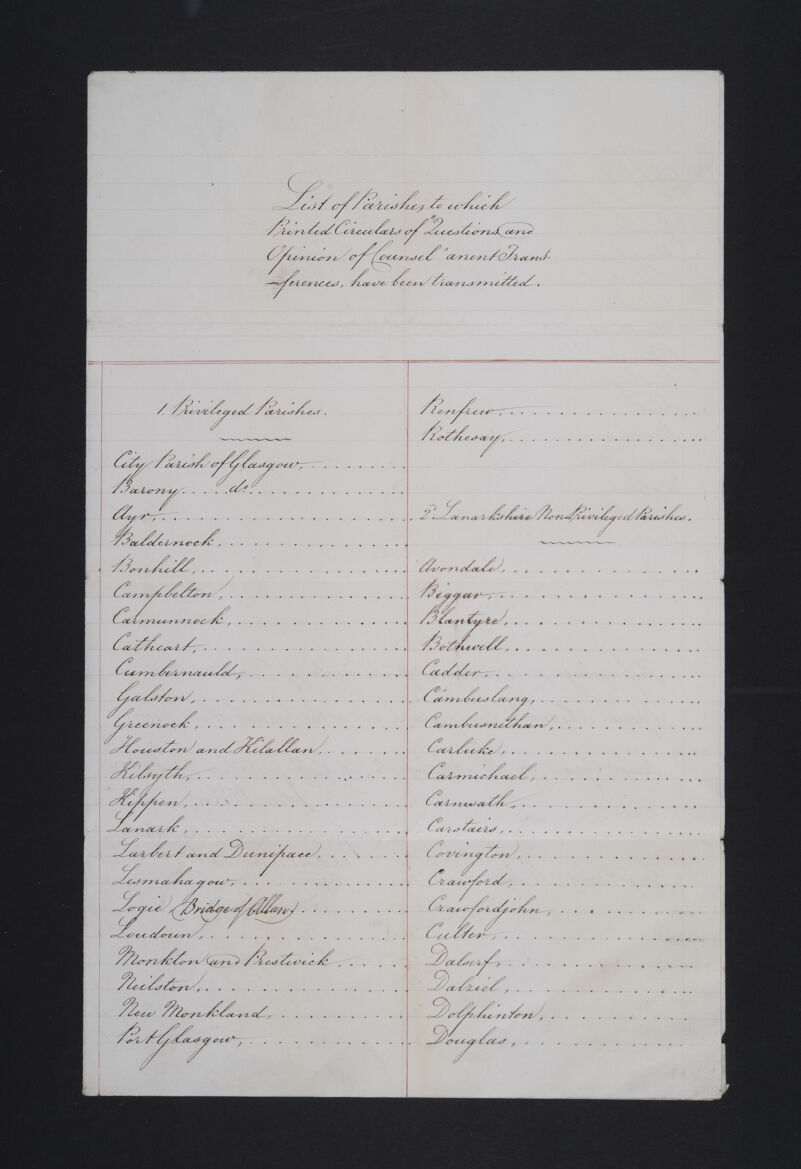 List of Parishes to which
Printed Circulars of "Questions and
Opinion of Counsel" anent Trans-
-ferences, have been transmitted.
1. Privileged Parishes.
City Parish of Glasgow,
Barony do
Ayr,
Baldernock,
Bonhill,
Campbelton,
Carmunnock,
Cathcart,
Cumbernauld,
Galston,
Greenock,
Houston and Kilallan,
Kilsyth,
Kippen,
Lanark,
Larbert and Dunipace,
Lesmahagow,
Logie (Bridge of Allan)
Loudoun,
Monkton and Prestwick,
Neilston,
New Monkland,
Port Glasgow,
Renfrew,
Rothesay,
2. Lanarkshire Non-Privileged Parishes.
Avondale,
Biggar,
Blantyre,
Bothwell,
Cadder,
Cambuslang,
Cambusnethan,
Carluke,
Carmichael,
Carnwath,
Carstairs,
Covington,
Crawford,
Crawfordjohn,
Culter,
Dalserf,
Dalziel,
Dolphinton,
Douglas,